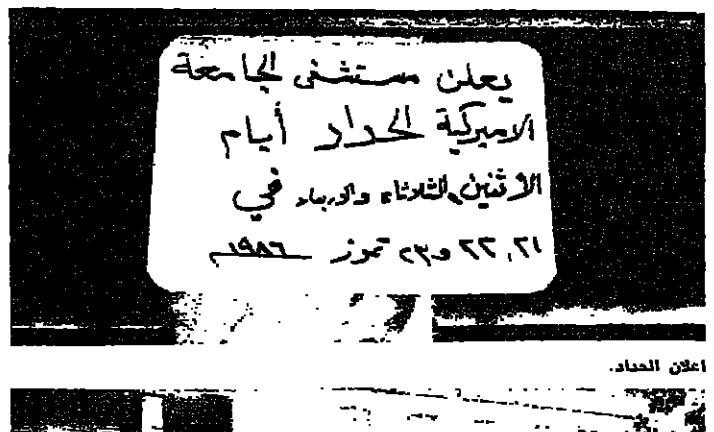 يعلن مستشفى الجامعة
الاميركية الحداد أيام
الاثنين، الثلاثاء والاربعاء في
٢١، ٢٢ و٢٣ تموز ١٩٨٦م
اعلان الحداد.